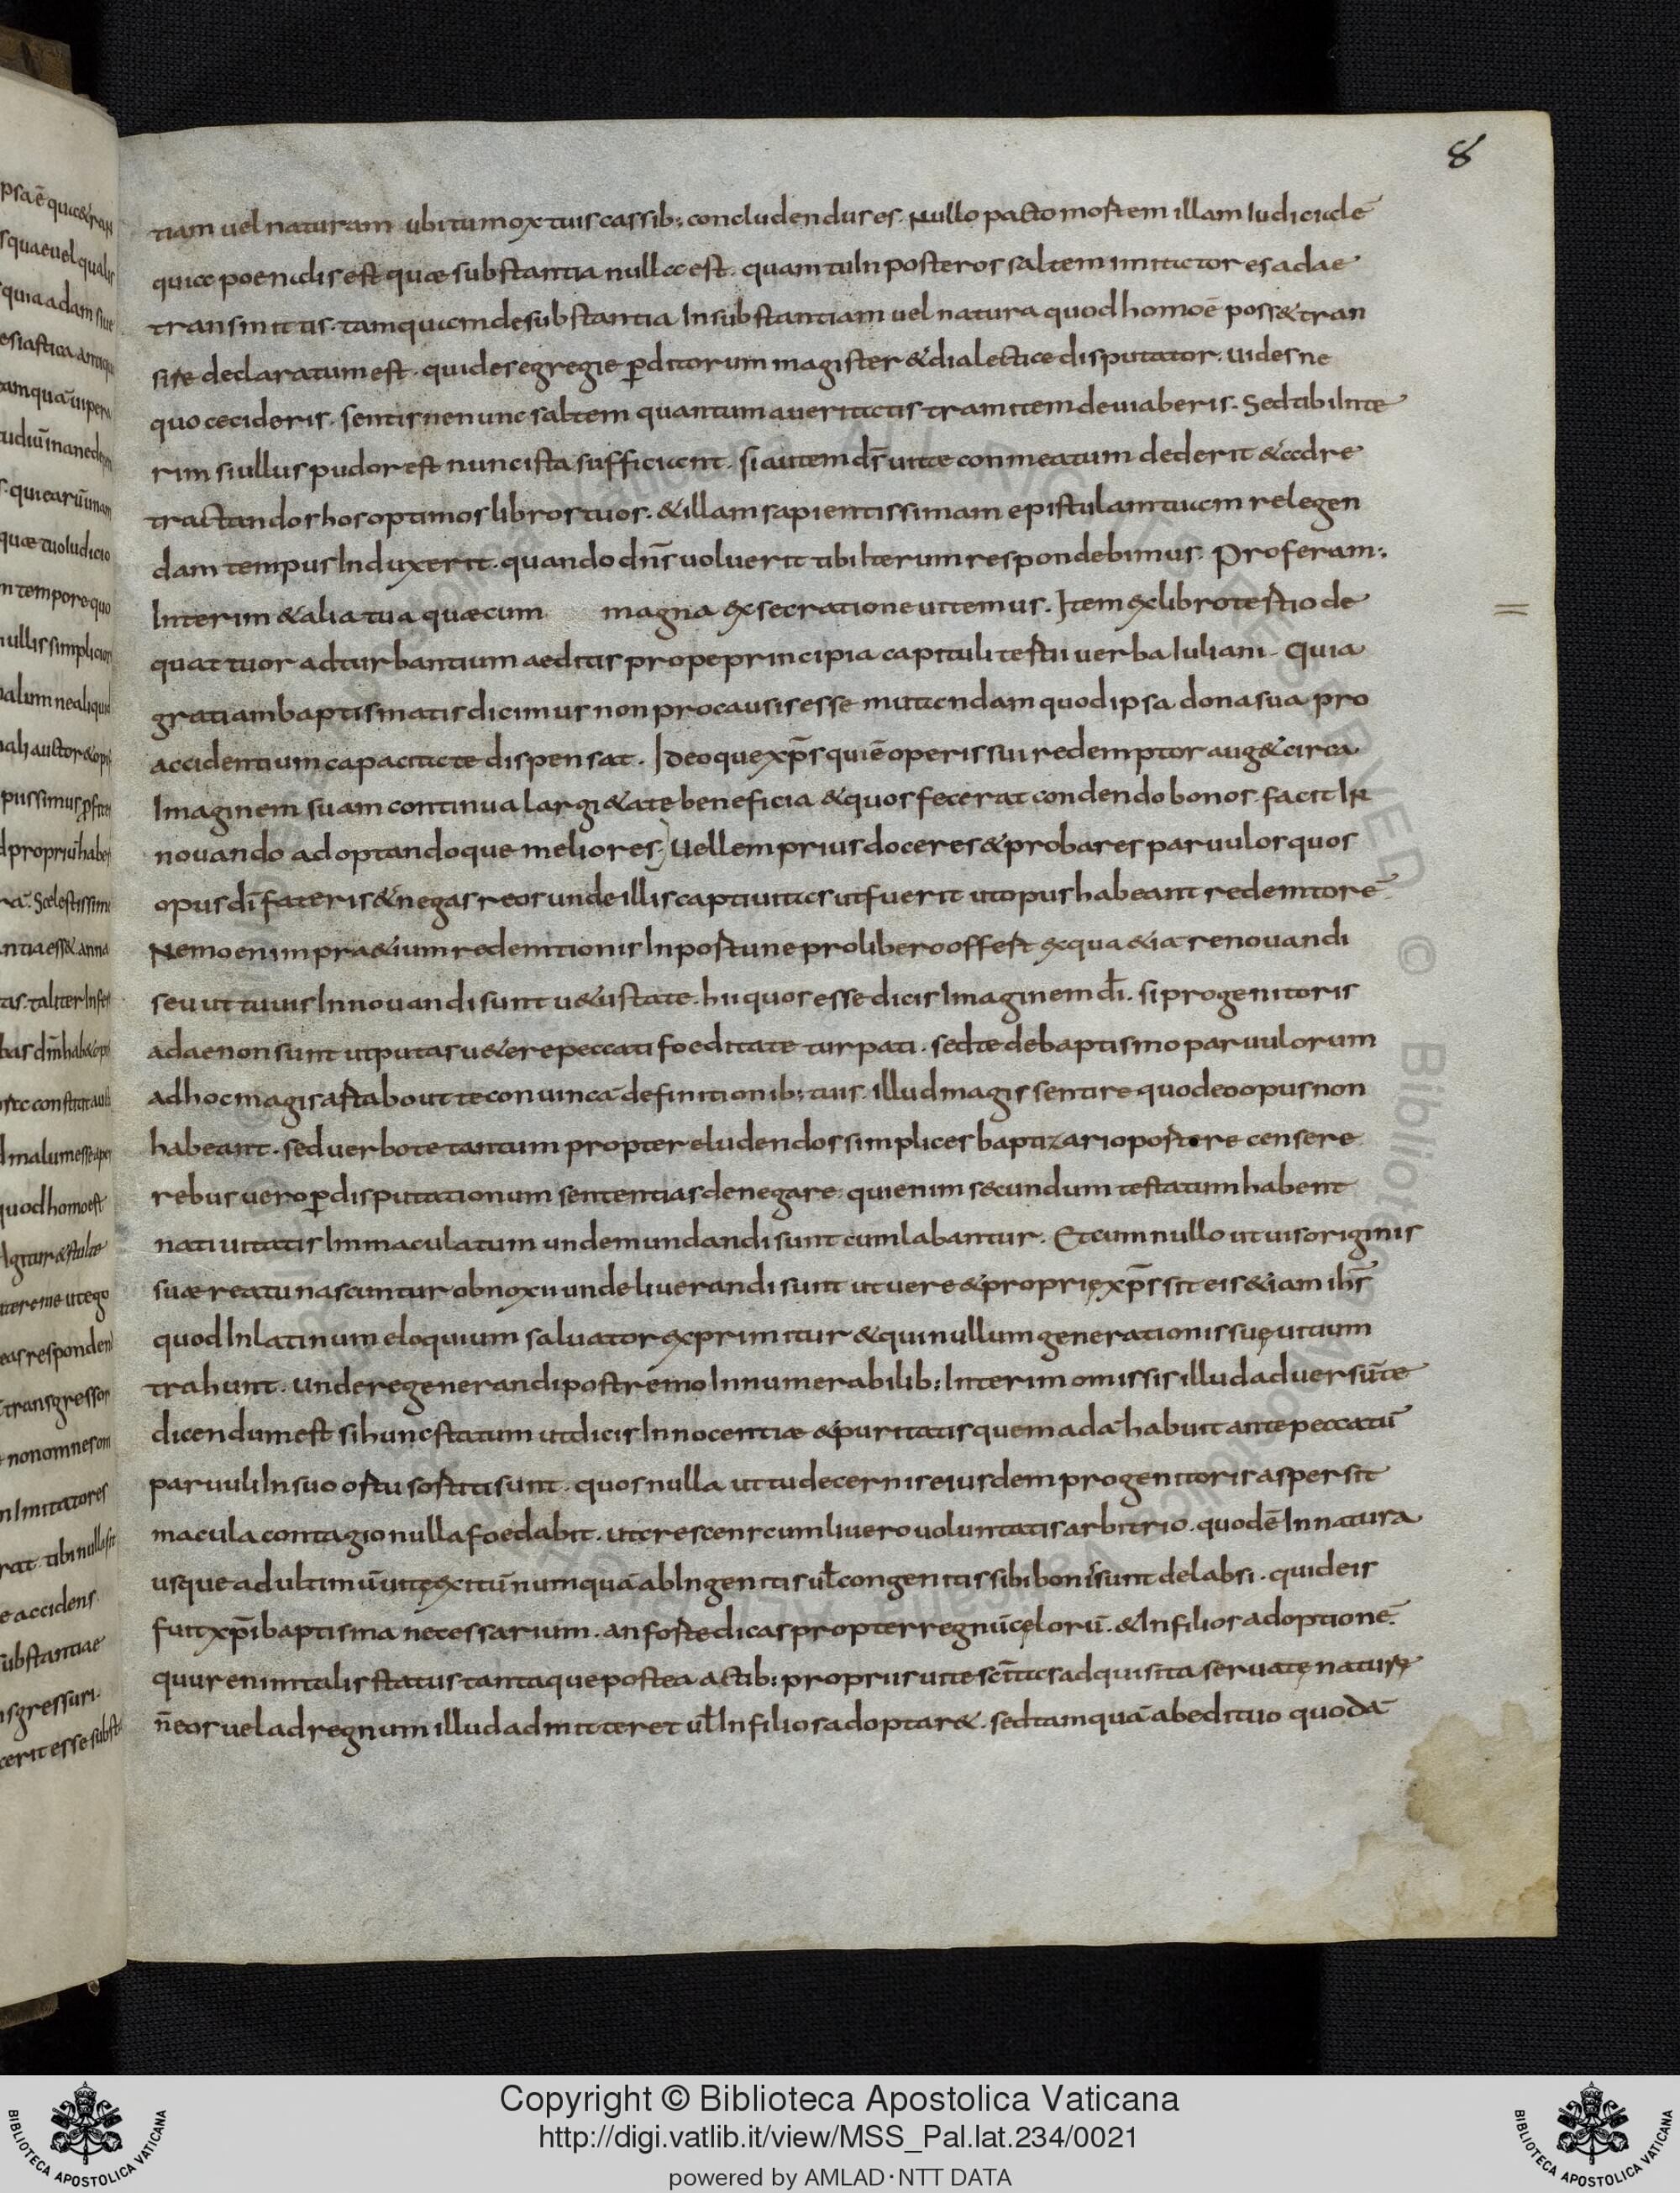 8
tiam uel naturam ubi tu mox tuis cassib; concludendus es. Nullo pacto mortem illam Iudicialē
quia poenalis est quae substantia nulla est. quam tu In posteros saltem imitator es adae
transmittis. tamquam de substantia In substantiam uel natura quod homo ē poss& tran
sire declaratum est. quid es egregie p̄ditorum magister & dialectice disputator. uidesne
quo cecideris. sentisne nunc saltem quantum a ueritatis tramitem deuiaberis. Sed tibi Inte
rim si ullus pudor est nunc ista sufficiant. si autem dr̄ uitae conmeatum dederit & ad re
tractandos hos optimos libros tuos. & illam sapientissimam epistulam tuam relegen
dam tempus Induxerit. quando dn̄s uoluerit tibi Iterum respondebimus. Proferam;
Interim & alia tua quae cum magna exsecratione uitemus. Item ex libro tertio de
quattuor ad turbantium aeditis prope principia capituli tertii uerba Iuliani. Quia
gratiam baptismatis dicimus non pro causis esse mutandam quod ipsa dona sua pro
accidentium capacitate dispensat. Ideoque xp̄s qui ē operis sui redemptor aug& circa
Imaginem suam continua largi&ate beneficia & quos fecerat condendo bonos. facit In
nouando adoptandoque meliores; Uellem prius doceres & probares paruulos quos
opus dī fateris & negas reos unde illis captiuitas ut fuerit ut opus habeant redemtorē
Nemo enim pra&ium redemtionis Inportune pro libero offert ex qua &ia renouandi
seu ut tu uis Innouandi sunt u&ustate. hii quos esse dicis Imaginem dī. si progenitoris
adae non sunt ut putas u&ere peccati foeditate turpati. sed te de baptismo paruulorum
ad hoc magis artabo ut te conuincā definitionib; tuis. illud magis sentire quod eo opus non
habeant. sed uerbo te tantum propter eludendos simplices baptizari oportere censere
rebus uero p̄ disputationum sententias denegare. qui enim secundum te statum habent
natiuitatis Immaculatum unde mundandi sunt cum labantur. Et cum nullo ut uis originis
suae reatu nascuntur obnoxii unde liuerandi sunt ut uere & proprię xp̄s sit eis &iam ih̄s
quod In latinum eloquium saluator exprimitur & qui nullum generationis suę uitium
trahunt. unde regenerandi postremo Innumerabilib; Interim omissis illud aduersū te
dicendum est si hunc statum ut dicis Innocentiae & puritatis quem adā habuit ante peccatū
paruuli In suo ortu sortiti sunt. quos nulla ut tu decernis eiusdem progenitoris aspersit
macula contagio nulla foedabit. ut crescens cum liuero uoluntatis arbitrio. quod ē In natura
usque ad ultimū uitę exitū numquā ab Ingenitis ul̄ congenitis sibi bonis sunt delabsi. quid eis
fuit xp̄i baptisma necessarium. an forte dicas propter regnū cęlorū. & In filios adoptionē.
quur enim talis status tantaque postea actib; propriis uite scītas adquisita seruatę naturę
n̄ eos uel ad regnum illud admitteret ul̄ In filios adoptar&. sed tamquā ab edituo quodā
Copyright © Biblioteca Apostolica Vaticana
http://digi.vatlib.it/view/MSS_Pal.lat.234/0021
powered by AMLAD·NTT DATA
BIBLIOTECA APOSTOLICA VATICANA
BIBLIOTECA APOSTOLICA VATICANA